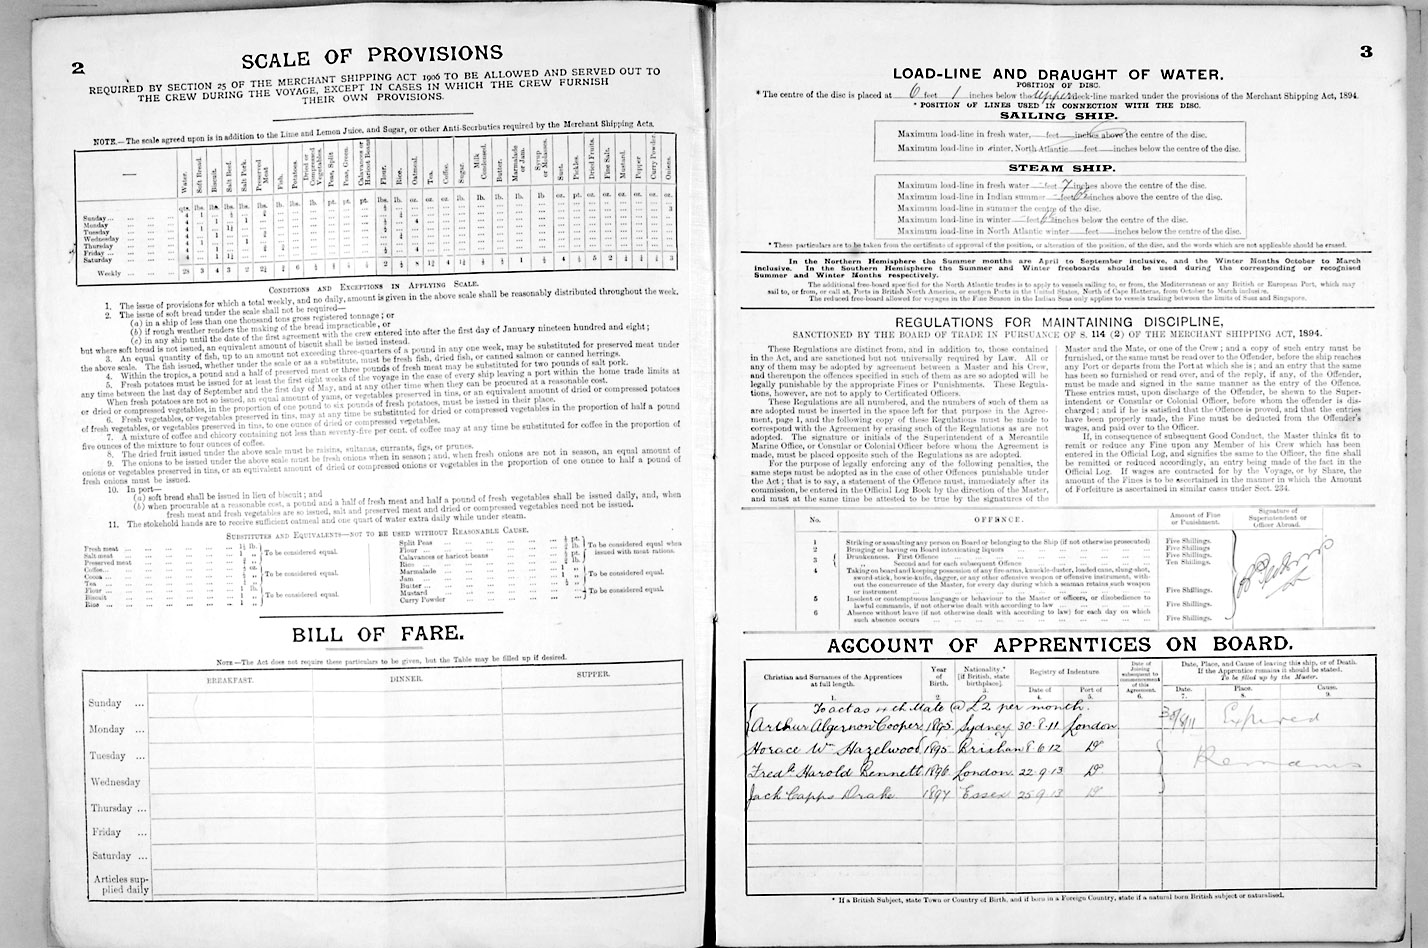 2
SCALE OF PROVISIONS
REQUIRED BY SECTION 25 OF THE MERCHANT SHIPPING ACT 1906 TO BE ALLOWED AND SERVED OUT TO
THE CREW DURING THE VOYAGE, EXCEPT IN CASES IN WHICH THE CREW FURNISH
THEIR OWN PROVISIONS.
NOTE.—The scale agreed upon is in addition to the Lime and Lemon Juice, and Sugar, or other Anti-Scorbutics required by the Merchant Shipping Acts.
Water. Soft Bread. Biscuit. Salt Beef. Salt Pork. Preserved Meat Fish. Potatoes. Dried or Compressed Vegetables. Peas, Split Peas, Green. Calavances or Haricot Beans Flour. Rice. Oatmeal. Tea. Coffee. Sugar. Milk Condensed. Butter. Marmalade or Jam. Syrup or Molasses. Suet. Pickles. Dried Fruits. Fine Salt. Mustard. Pepper Curry Powder. Onions.
Sunday
Monday
Tuesday
Wednesday
Thursday
Friday
Saturday
Weekly
CONDITIONS AND EXCEPTIONS IN APPLYING SCALE.
1. The issue of provisions for which a total weekly, and no daily, amount is given in the above scale shall be reasonably distributed throughout the week.
2. The issue of soft bread under the scale shall not be required—
(a) in a ship of less than one thousand tons gross registered tonnage; or
(b) if rough weather renders the making of the bread impracticable, or
(c) in any ship until the date of the first agreement with the crew entered into after the first day of January nineteen hundred and eight;
but where soft bread is not issued, an equivalent amount of biscuit shall be issued instead.
3. An equal quantity of fish, up to an amount not exceeding three-quarters of a pound in any one week, may be substituted for preserved meat under
the above scale. The fish issued, whether under the scale or as a substitute, must be fresh fish, dried fish, or canned salmon or canned herrings.
4. Within the tropics, a pound and a half of preserved meat or three pounds of fresh meat may be substituted for two pounds of salt pork.
5. Fresh potatoes must be issued for at least the first eight weeks of the voyage in the case of every ship leaving a port within the home trade limits at
any time between the last day of September and the first day of May, and at any other time when they can be procured at a reasonable cost.
When fresh potatoes are not so issued, an equal amount of yams, or vegetables preserved in tins, or an equivalent amount of dried or compressed potatoes
or dried or compressed vegetables, in the proportion of one pound to six pounds of fresh potatoes, must be issued in their place.
6. Fresh vegetables, or vegetables preserved in tins, may at any time be substituted for dried or compressed vegetables in the proportion of half a pound
of fresh vegetables, or vegetables preserved in tins, to one ounce of dried or compressed vegetables.
7. A mixture of coffee and chicory containing not less than seventy-five per cent. of coffee may at any time be substituted for coffee in the proportion of
five ounces of the mixture to four ounces of coffee.
8. The dried fruit issued under the above scale must be raisins, sultanas, currants, figs, or prunes.
9. The onions to be issued under the above scale must be fresh onions when in season; and, when fresh onions are not in season, an equal amount of
onions or vegetables preserved in tins, or an equivalent amount of dried or compressed onions or vegetables in the proportion of one ounce to half a pound of
fresh onions must be issued.
10. In port—
(a) soft bread shall be issued in lieu of biscuit; and
(b) when procurable at a reasonable cost, a pound and a half of fresh meat and half a pound of fresh vegetables shall be issued daily, and, when
fresh meat and fresh vegetables are so issued, salt and preserved meat and dried or compressed vegetables need not be issued.
11. The stokehold hands are to receive sufficient oatmeal and one quart of water extra daily while under steam.
SUBSTITUTES AND EQUIVALENTS—NOT TO BE USED WITHOUT REASONABLE CAUSE.
Fresh meat
Salt meat
Preserved meat
To be considered equal.
Coffee
Cocoa
Tea
To be considered equal.
Flour
Biscuit
Rice
To be considered equal.
Split Peas
Flour
Calavances or haricot beans
Rice
To be considered equal when issued with meat rations.
Marmalade
Jam
Butter
To be considered equal.
Mustard
Curry Powder
To be considered equal.
BILL OF FARE.
NOTE—The Act does not require these particulars to be given, but the Table may be filled up if desired.
BREAKFAST. DINNER. SUPPER.
Sunday ...
Monday ...
Tuesday ...
Wednesday
Thursday ...
Friday ...
Saturday ...
Articles sup-
plied daily
3
LOAD-LINE AND DRAUGHT OF WATER.
POSITION OF DISC.
* The centre of the disc is placed at 6 feet 1 inches below the upper deck-line marked under the provisions of the Merchant Shipping Act, 1894.
* POSITION OF LINES USED IN CONNECTION WITH THE DISC.
SAILING SHIP.
Maximum load-line in fresh water, feet inches above the centre of the disc.
Maximum load-line in winter, North Atlantic feet inches below the centre of the disc.
STEAM SHIP.
Maximum load-line in fresh water feet 7 inches above the centre of the disc.
Maximum load-line in Indian summer feet 6½ inches above the centre of the disc.
Maximum load-line in summer the centre of the disc.
Maximum load-line in winter feet 6½ inches below the centre of the disc.
Maximum load-line in North Atlantic winter feet inches below the centre of the disc.
* These particulars are to be taken from the certificate of approval of the position, or alteration of the position, of the disc, and the words which are not applicable should be erased.
In the Northern Hemisphere the Summer months are April to September inclusive, and the Winter Months October to March
inclusive. In the Southern Hemisphere the Summer and Winter freeboards should be used during the corresponding or recognised
Summer and Winter Months respectively.
The additional free-board specified for the North Atlantic trades is to apply to vessels sailing to, or from, the Mediterranean or any British or European Port, which may
sail to, or from, or call at, Ports in British North America, or eastern Ports in the United States, North of Cape Hatteras, from October to March inclusive.
The reduced free-board allowed for voyages in the Fine Season in the Indian Seas only applies to vessels trading between the limits of Suez and Singapore.
REGULATIONS FOR MAINTAINING DISCIPLINE,
SANCTIONED BY THE BOARD OF TRADE IN PURSUANCE OF S. 114 (2) OF THE MERCHANT SHIPPING ACT, 1894.
These Regulations are distinct from, and in addition to, those contained
in the Act, and are sanctioned but not universally required by Law. All or
any of them may be adopted by agreement between a Master and his Crew,
and thereupon the offences specified in such of them as are so adopted will be
legally punishable by the appropriate Fines or Punishments. These Regula-
tions, however, are not to apply to Certificated Officers.
These Regulations are all numbered, and the numbers of such of them as
are adopted must be inserted in the space left for that purpose in the Agree-
ment, page 1, and the following copy of these Regulations must be made to
correspond with the Agreement by erasing such of the Regulations as are not
adopted. The signature or initials of the Superintendent of a Mercantile
Marine Office, or Consular or Colonial Officer before whom the Agreement is
made, must be placed opposite such of the Regulations as are adopted.
For the purpose of legally enforcing any of the following penalties, the
same steps must be adopted as in the case of other Offences punishable under
the Act; that is to say, a statement of the Offence must, immediately after its
commission, be entered in the Official Log Book by the direction of the Master,
and must at the same time be attested to be true by the signatures of the
Master and the Mate, or one of the Crew; and a copy of such entry must be
furnished, or the same must be read over to the Offender, before the ship reaches
any Port or departs from the Port at which she is; and an entry that the same
has been so furnished or read over, and of the reply, if any, of the Offender,
must be made and signed in the same manner as the entry of the Offence.
These entries must, upon discharge of the Offender, be shewn to the Super-
intendent or Consular or Colonial Officer, before whom the offender is dis-
charged; and if he is satisfied that the Offence is proved, and that the entries
have been properly made, the Fine must be deducted from the Offender's
wages, and paid over to the Officer.
If, in consequence of subsequent Good Conduct, the Master thinks fit to
remit or reduce any Fine upon any Member of his Crew which has been
entered in the Official Log, and signifies the same to the Officer, the fine shall
be remitted or reduced accordingly, an entry being made of the fact in the
Official Log. If wages are contracted for by the Voyage, or by Share, the
amount of the Fines is to be ascertained in the manner in which the Amount
of Forfeiture is ascertained in similar cases under Sect. 234.
No. OFFENCE Amount of Fine or Punishment. Signature of Superintendent or Officer Abroad.
1 Striking or assaulting any person on Board or belonging to the Ship (if not otherwise prosecuted) Five Shillings.
2 Bringing or having on Board intoxicating liquors Five Shillings.
3 Drunkenness. First Offence Five Shillings.
Second and for each subsequent Offence Ten Shillings.
4 Taking on board and keeping possession of any fire-arms, knuckle-duster, loaded cane, slung-shot,
sword-stick, bowie-knife, dagger, or any other offensive weapon or offensive instrument, with-
out the concurrence of the Master, for every day during which a seaman retains such weapon
or instrument Five Shillings.
5 Insolent or contemptuous language or behaviour to the Master or officers, or disobedience to
lawful commands, if not otherwise dealt with according to law Five Shillings.
6 Absence without leave (if not otherwise dealt with according to law) for each day on which
such absence occurs Five Shillings.
ACCOUNT OF APPRENTICES ON BOARD.
Christian and Surnames of the Apprentices at full length. Year of Birth. Nationality.* [If British, state birthplace]. Registry of Indenture. Date of Joining subsequent to commencement of this Agreement. Date, Place, and Cause of leaving this ship, or of Death. If the Apprentice remains it should be stated. To be filled up by the Master.
1. 2. 3. Date of 4. Port of 5. 6. Date. 7. Place. 8. Cause. 9.
To act as 4th Mate @ £2 per month.
Arthur Algernon Cooper 1895 Sydney 30·8·11 London Expired
Horace Wm Hazelwood 1895 Brixham 8·6·12 Do
Fredk Harold Bennett 1896 London 22·9·13 Do Remains
Jack Capps Drake 1897 Essex 25·9·13 Do
* If a British Subject, state Town or Country of Birth, and if born in a Foreign Country, state if a natural born British subject or naturalised.